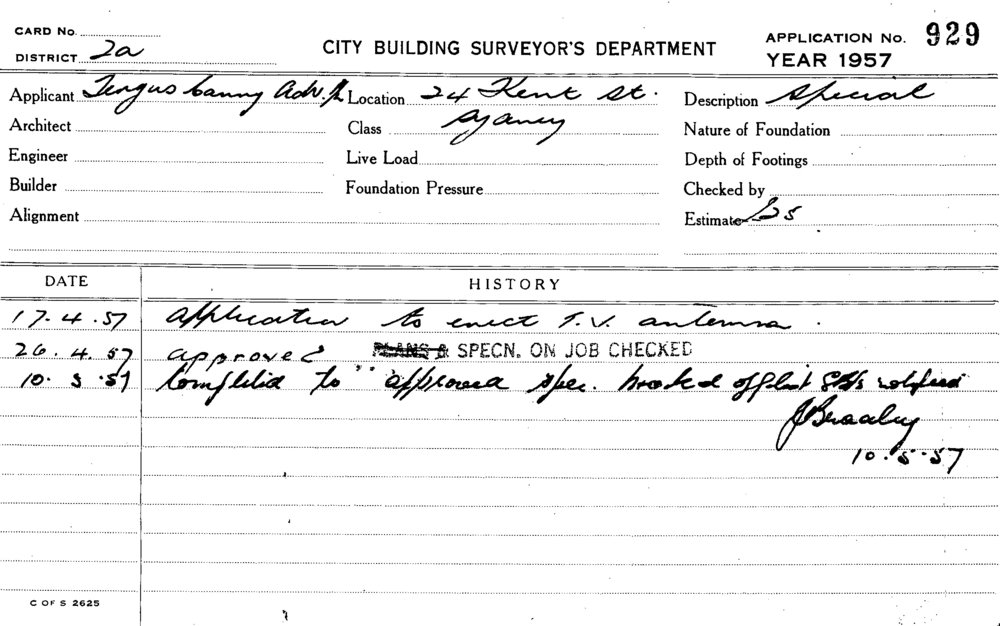 CARD No.
DISTRICT 2a
CITY BUILDING SURVEYOR'S DEPARTMENT
APPLICATION No. 929
YEAR 1957
Applicant Fergus Canny Adv. Location 24 Kent St. Description Special
Architect Class Sydney Nature of Foundation
Engineer Live Load Depth of Footings
Builder Foundation Pressure Checked by
Alignment Estimate 25
DATE HISTORY
17.4.57 Application to erect T.V. antenna.
26.4.57 approved PLANS & SPECN. ON JOB CHECKED
10.5.57 Completed to approved spec. booked off list notified
J Bradley
10.5.57
C OF S 2625